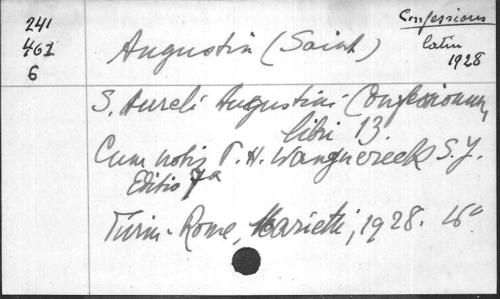 241
461
6
Confessions
latin
1928
Augustin (Saint)
S. Aureli Augustini Confessionum
libri 13.
Cum notis P. H. Wangnereck S.J.
Editio 7a
Turin-Rome, Marietti, 1928. 16°